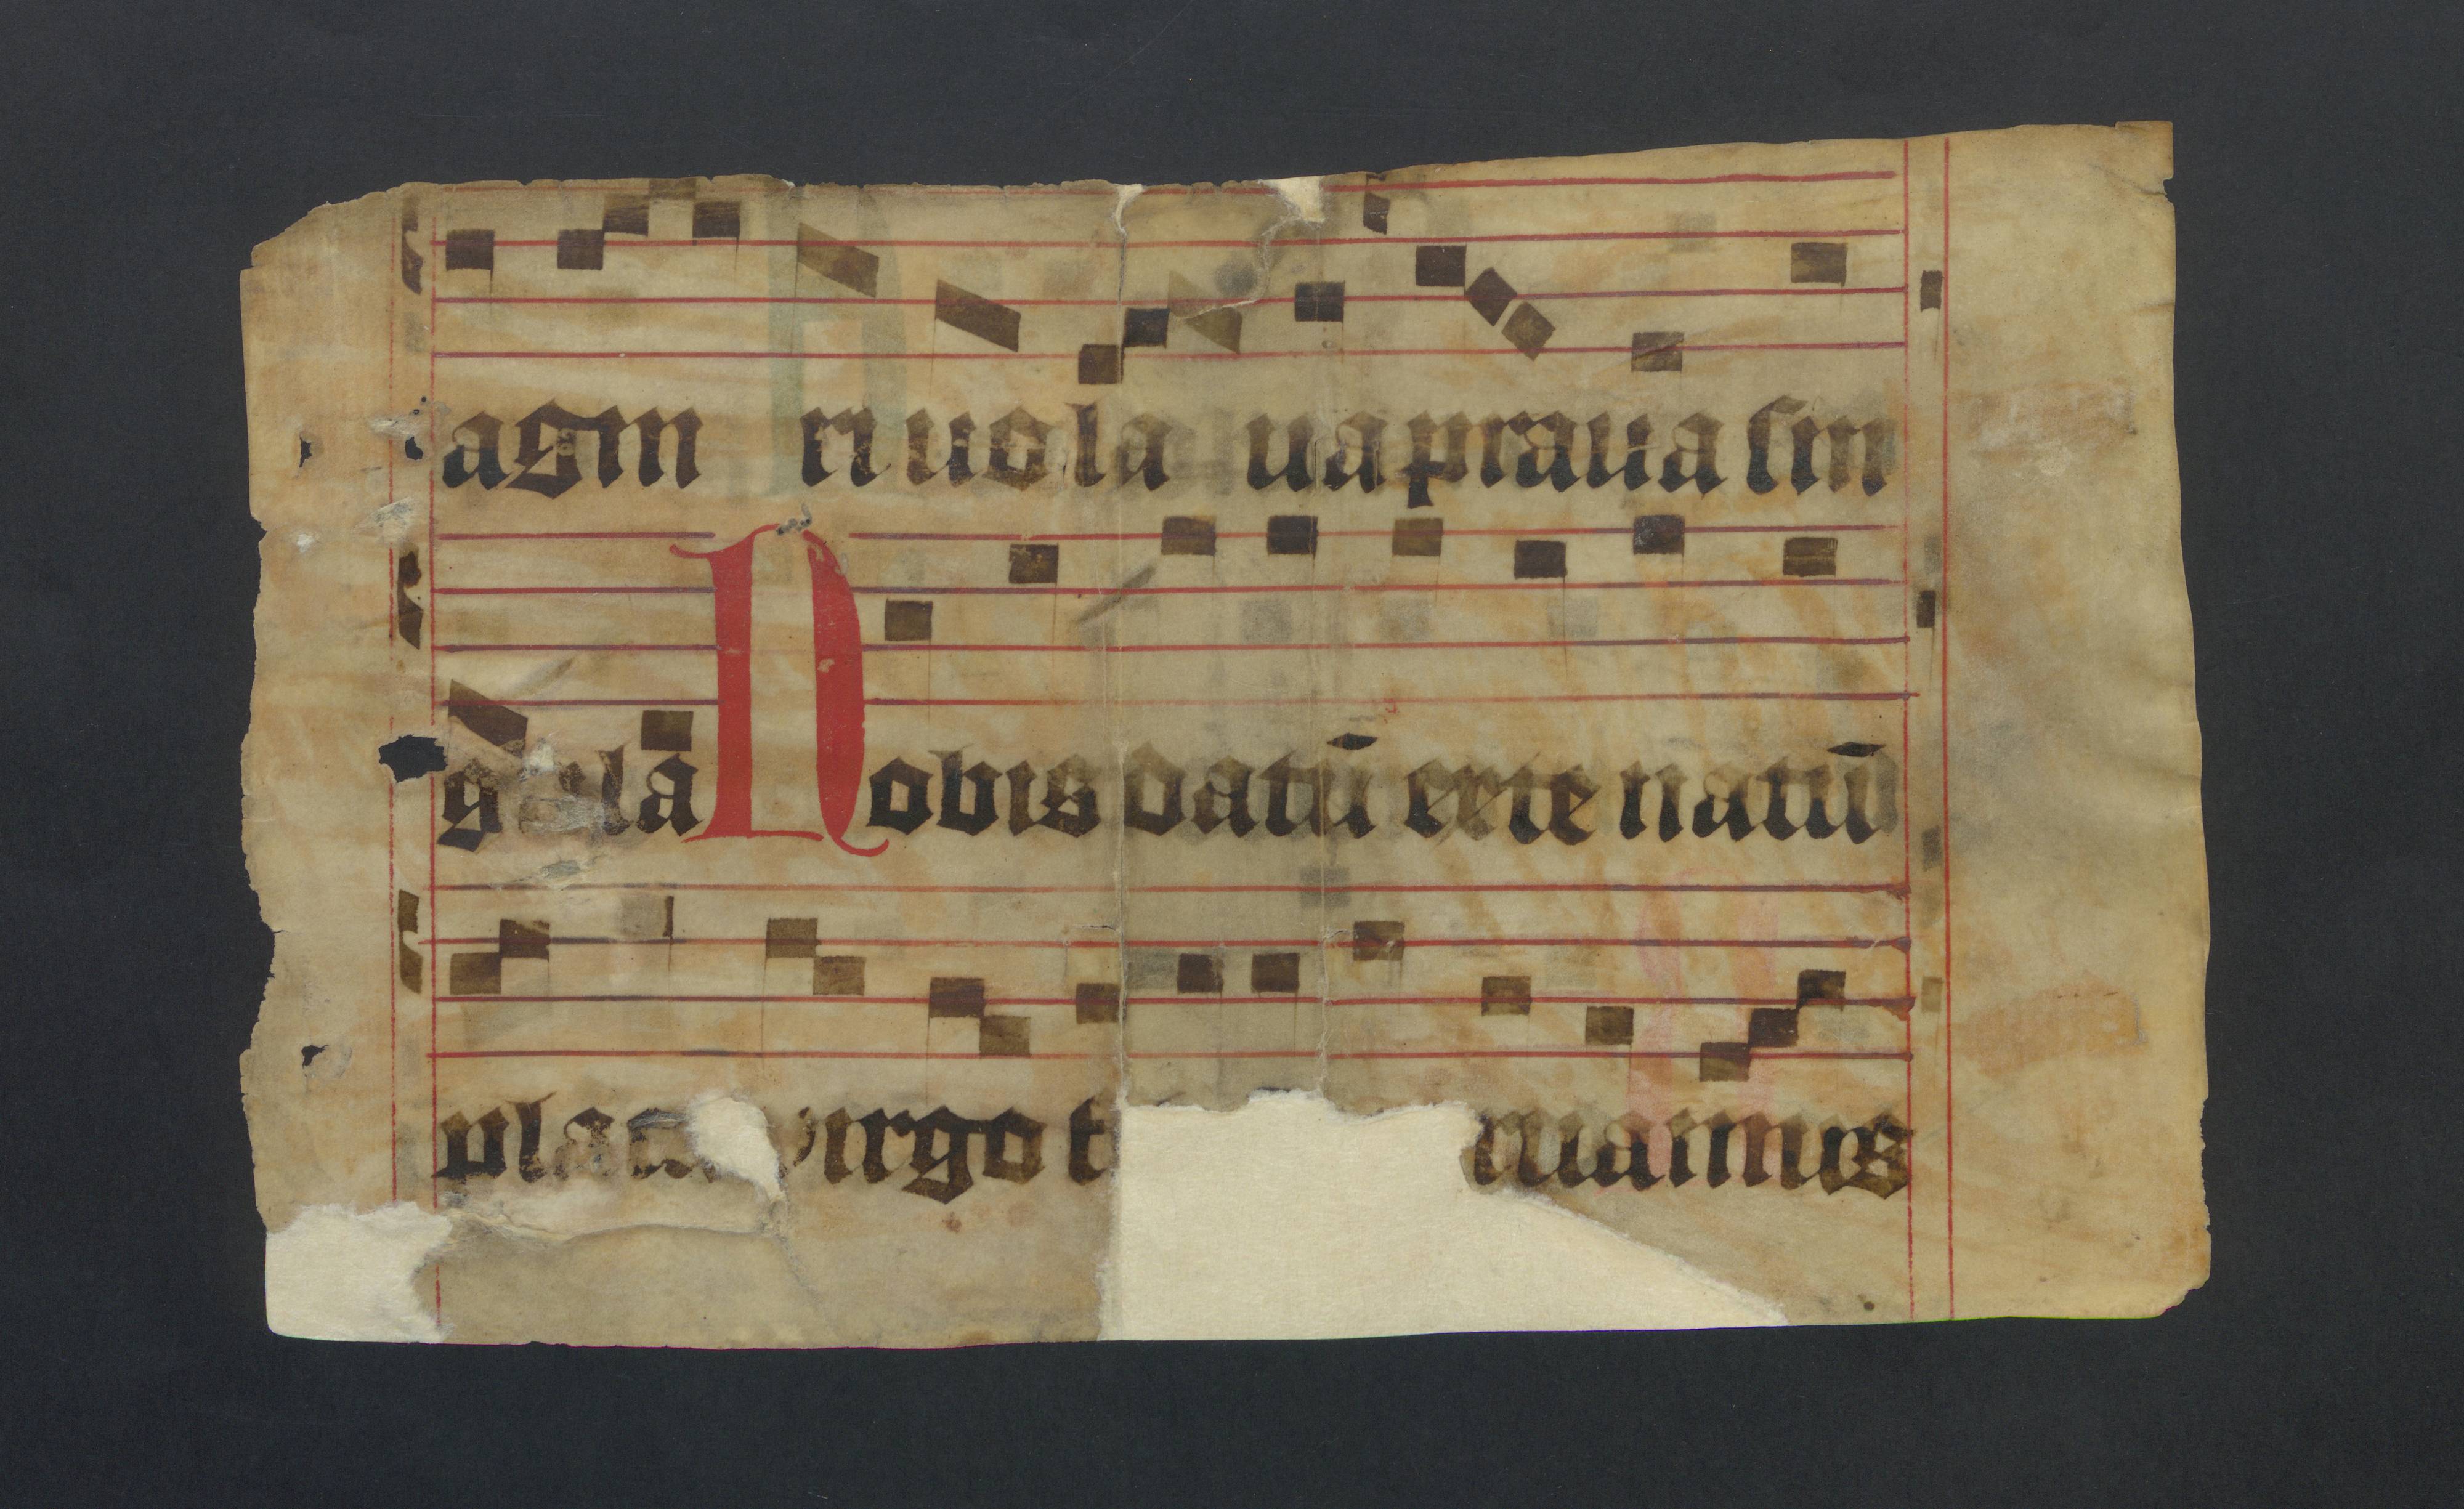 agm ri uo la ua praua sin
g la Nobis datū erte natū
placa virgo t ruamus